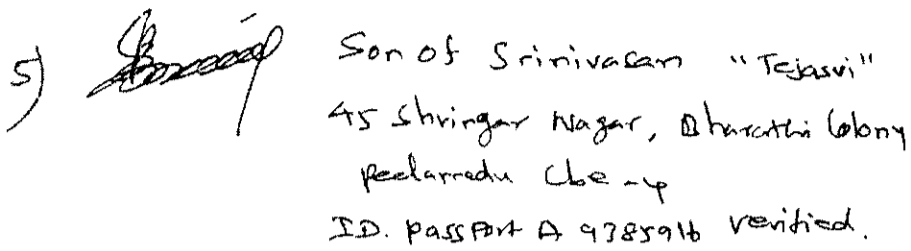 5) Son of Srinivasan "Tejasvi"
45 Shringar Nagar, Bharathi Colony
Peelamedu Cbe-4
ID. Passport A 9385916 verified.